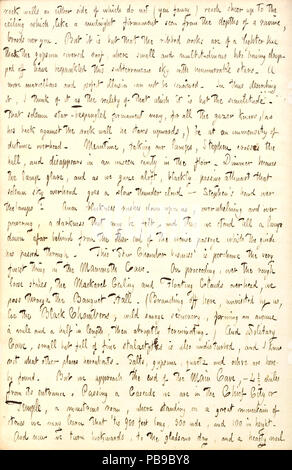 rock walls on either side of which do not, you fancy, reach sheer up to the
ceiling which like a midnight firmament seen from the depths of a ravine
bounds our eye. But it is not that the ribbed rocks are of a lighter hue
that the gypsum covered roof where small and multitudinous
have bespangled this subterranean sky with innumerable stars. A
more marvellous and perfect illusion can not be conceived. In thus describing
it, I think of it as the reality of that which it is but the similitude.
That solemn star-bespangled firmament may, for all the gazer knows, (as
his back against the rock wall he stares upwards,) be at an immensity of
distance overhead. Meantime, taking our lamps, Stephen crosses the
hall, and disappears in an unseen cavity in the floor. Dimmer becomes
the lamps glare, and as we gaze aloft, blackly passing athwart that
solemn sky overhead goes a slow thunder cloud — Stephen's hand over
the lamps! Anon blackness rushes down upon us, overwhelming and over
powering, a darkness that may be felt, and thus we stand till a lamp
dawns afar behind from the end of the avenue passage which the guide
has passed through. This Star Chamber business is perchance the very
finest thing in the Mammoth Cave. On proceeding, over the rough
loose rocks, the Mackerel Ceiling and Floating Clouds overhead, we
pass through the Banquet Hall. (Branching off here, unvisited by us,
lie the Black Chambers, wild, savage scenery, forming an avenue
a mile and a half in length then abruptly terminating.) And Solitary
Cave, small but full of fine stalactites is also undisturbed, and I know
not what other places besides. Salts, gypsum, quartz and ochre are here
to be found. But we approach the end of the Main Cave, — 4 1/2 miles
from its entrance. Passing a Cascade we are in the Chief City or
Temple, a monstrous room, where standing on a great mountain of
stones we may learn that tis 900 feet long, 300 wide, and 100 in height.
And now we turn backwards, to the gladsome day, and a hearty meal
alamy
PB9BY8